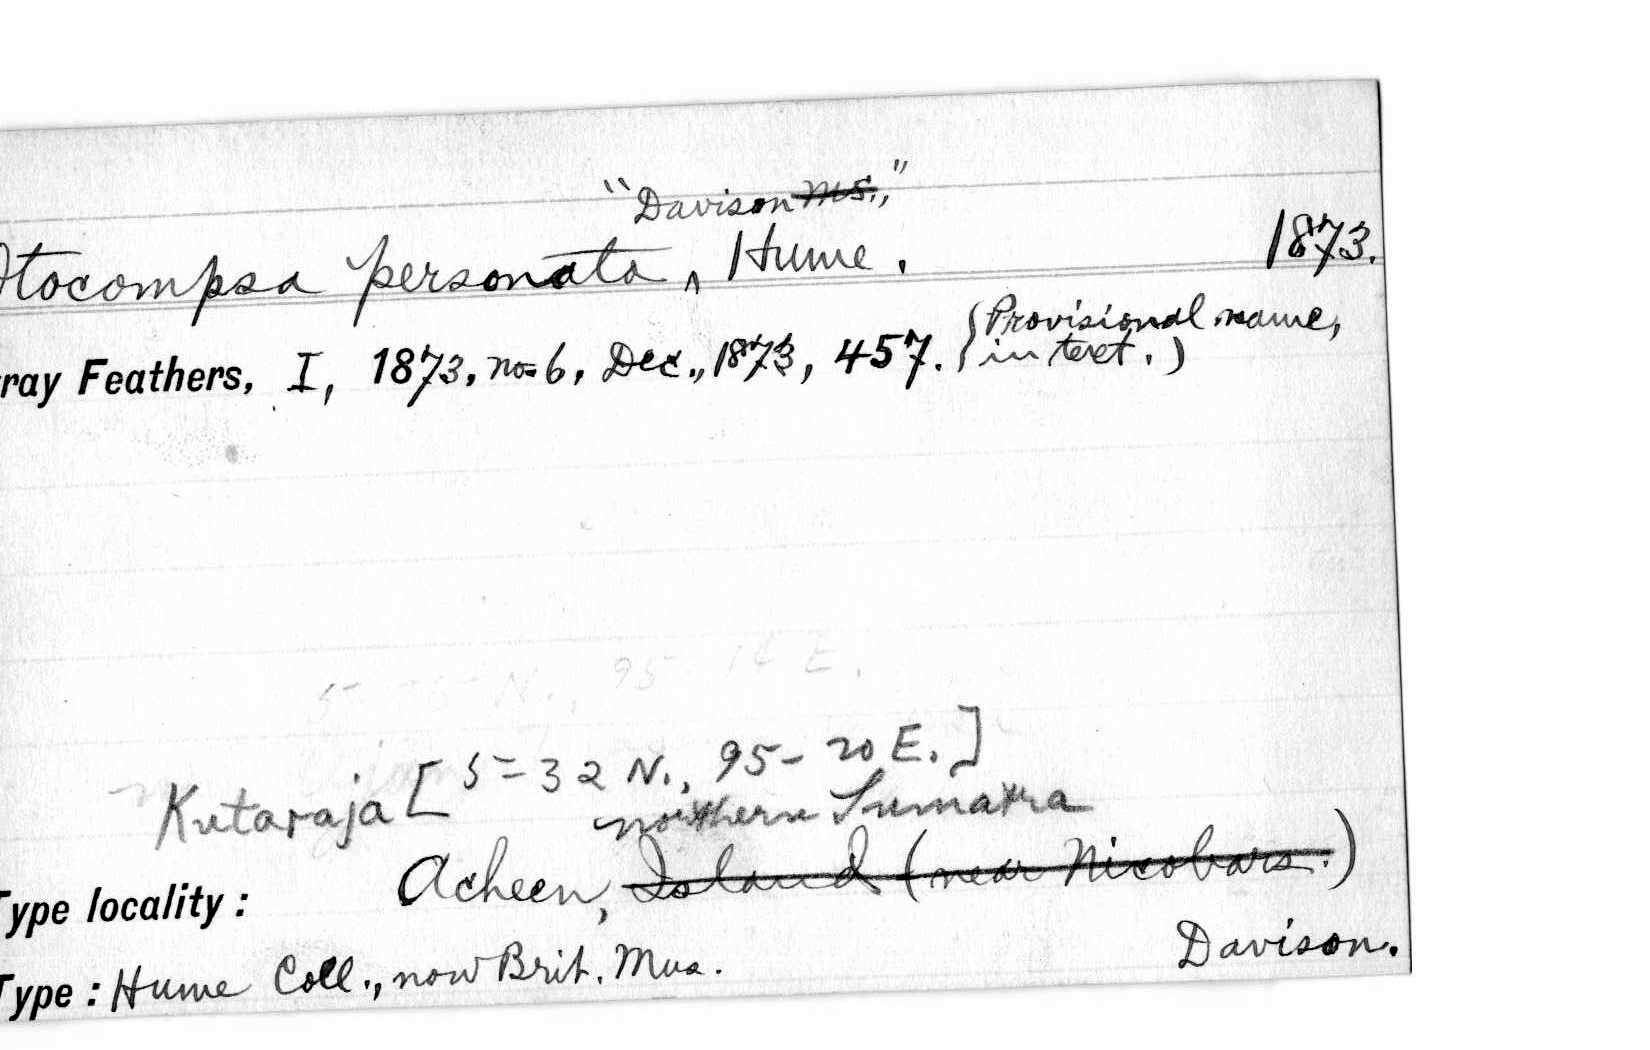 "Davison ms.,"
Otocompsa personata, ^ Hume. 1873.
ray Feathers, I, 1873, no 6, Dec., 1873, 457. (Provisional name,
in text.)
95 E.
Kutaraja [5-32 N., 95-20 E.]
northern Sumatra
Type locality: Acheen, Island (near Nicobars.)
Type: Hume Coll., now Brit. Mus. Davison.